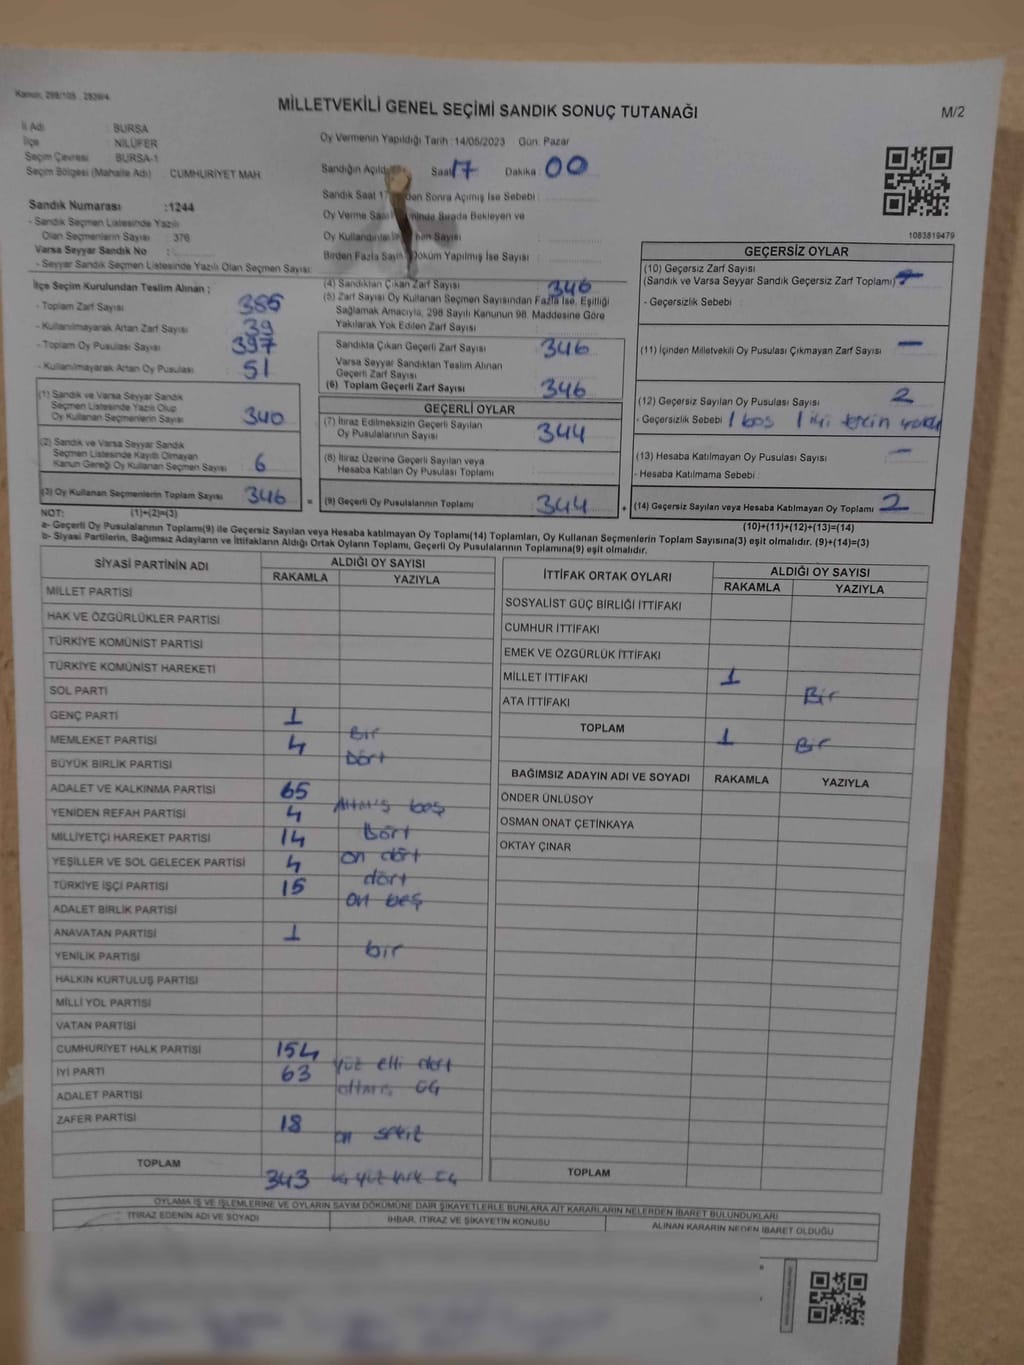 Kanun, 298/105 , 2839/4
MİLLETVEKİLİ GENEL SEÇİMİ SANDIK SONUÇ TUTANAĞI
M/2
İl Adı : BURSA
İlçe : NİLÜFER
Seçim Çevresi : BURSA-1
Seçim Bölgesi (Mahalle Adı) : CUMHURİYET MAH.
Sandık Numarası :1244
- Sandık Seçmen Listesinde Yazılı
Olan Seçmenlerin Sayısı : 376
Varsa Seyyar Sandık No :
- Seyyar Sandık Seçmen Listesinde Yazılı Olan Seçmen Sayısı:
Oy Vermenin Yapıldığı Tarih : 14/05/2023 Gün: Pazar
Sandığın Saat 17 Dakika : 00
Sandık Saat Sonra Açılmış İse Sebebi :
Oy Verme Sırada Bekleyen ve
Oy Sayısı
Birden Fazla Döküm Yapılmış İse Sayısı :
1083819479
İlçe Seçim Kurulundan Teslim Alınan ;
- Toplam Zarf Sayısı 385
- Kullanılmayarak Artan Zarf Sayısı 39
- Toplam Oy Pusulası Sayısı 397
- Kullanılmayarak Artan Oy Pusulası 51
(1) Sandık ve Varsa Seyyar Sandık
Seçmen Listesinde Yazılı Olup
Oy Kullanan Seçmenlerin Sayısı 340
(2) Sandık ve Varsa Seyyar Sandık
Seçmen Listesinde Kayıtlı Olmayan
Kanun Gereği Oy Kullanan Seçmen Sayısı 6
(3) Oy Kullanan Seçmenlerin Toplam Sayısı 346
(4) Sandıktan Çıkan Zarf Sayısı 346
(5) Zarf Sayısı Oy Kullanan Seçmen Sayısından Fazla İse, Eşitliği
Sağlamak Amacıyla, 298 Sayılı Kanunun 98. Maddesine Göre
Yakılarak Yok Edilen Zarf Sayısı
Sandıkta Çıkan Geçerli Zarf Sayısı 346
Varsa Seyyar Sandıktan Teslim Alınan
Geçerli Zarf Sayısı
(6) Toplam Geçerli Zarf Sayısı 346
GEÇERLİ OYLAR
(7) İtiraz Edilmeksizin Geçerli Sayılan
Oy Pusulalarının Sayısı 344
(8) İtiraz Üzerine Geçerli Sayılan veya
Hesaba Katılan Oy Pusulası Toplamı
= (9) Geçerli Oy Pusulalarının Toplamı 344 +
GEÇERSİZ OYLAR
(10) Geçersiz Zarf Sayısı
(Sandık ve Varsa Seyyar Sandık Geçersiz Zarf Toplamı)
- Geçersizlik Sebebi :
(11) İçinden Milletvekili Oy Pusulası Çıkmayan Zarf Sayısı —
(12) Geçersiz Sayılan Oy Pusulası Sayısı 2
- Geçersizlik Sebebi 1 boş 1 iyi
(13) Hesaba Katılmayan Oy Pusulası Sayısı —
- Hesaba Katılmama Sebebi :
(14) Geçersiz Sayılan veya Hesaba Katılmayan Oy Toplamı 2
NOT: (1)+(2)=(3)
(10)+(11)+(12)+(13)=(14)
a- Geçerli Oy Pusulalarının Toplamı(9) ile Geçersiz Sayılan veya Hesaba katılmayan Oy Toplamı(14) Toplamları, Oy Kullanan Seçmenlerin Toplam Sayısına(3) eşit olmalıdır. (9)+(14)=(3)
b- Siyasi Partilerin, Bağımsız Adayların ve İttifakların Aldığı Ortak Oyların Toplamı, Geçerli Oy Pusulalarının Toplamına(9) eşit olmalıdır.
SİYASİ PARTİNİN ADI ALDIĞI OY SAYISI
RAKAMLA YAZIYLA
MİLLET PARTİSİ
HAK VE ÖZGÜRLÜKLER PARTİSİ
TÜRKİYE KOMÜNİST PARTİSİ
TÜRKİYE KOMÜNİST HAREKETİ
SOL PARTİ
GENÇ PARTİ 1 Bir
MEMLEKET PARTİSİ 4 Dört
BÜYÜK BİRLİK PARTİSİ
ADALET VE KALKINMA PARTİSİ 65 Altmış beş
YENİDEN REFAH PARTİSİ 4 Dört
MİLLİYETÇİ HAREKET PARTİSİ 14 on dört
YEŞİLLER VE SOL GELECEK PARTİSİ 4 dört
TÜRKİYE İŞÇİ PARTİSİ 15 on beş
ADALET BİRLİK PARTİSİ
ANAVATAN PARTİSİ 1 bir
YENİLİK PARTİSİ
HALKIN KURTULUŞ PARTİSİ
MİLLİ YOL PARTİSİ
VATAN PARTİSİ
CUMHURİYET HALK PARTİSİ 154 yüz elli dört
İYİ PARTİ 63 altmış üç
ADALET PARTİSİ
ZAFER PARTİSİ 18 on sekiz
TOPLAM 343 üç yüz kırk üç
İTTİFAK ORTAK OYLARI ALDIĞI OY SAYISI
RAKAMLA YAZIYLA
SOSYALİST GÜÇ BİRLİĞİ İTTİFAKI
CUMHUR İTTİFAKI
EMEK VE ÖZGÜRLÜK İTTİFAKI
MİLLET İTTİFAKI 1 Bir
ATA İTTİFAKI
TOPLAM 1 Bir
BAĞIMSIZ ADAYIN ADI VE SOYADI RAKAMLA YAZIYLA
ÖNDER ÜNLÜSOY
OSMAN ONAT ÇETİNKAYA
OKTAY ÇINAR
TOPLAM
OYLAMA İŞ VE İŞLEMLERİNE VE OYLARIN SAYIM DÖKÜMÜNE DAİR ŞİKAYETLERLE BUNLARA AİT KARARLARIN NELERDEN İBARET BULUNDUKLARI
İTİRAZ EDENİN ADI VE SOYADI İHBAR, İTİRAZ VE ŞİKAYETİN KONUSU ALINAN KARARIN NEDEN İBARET OLDUĞU